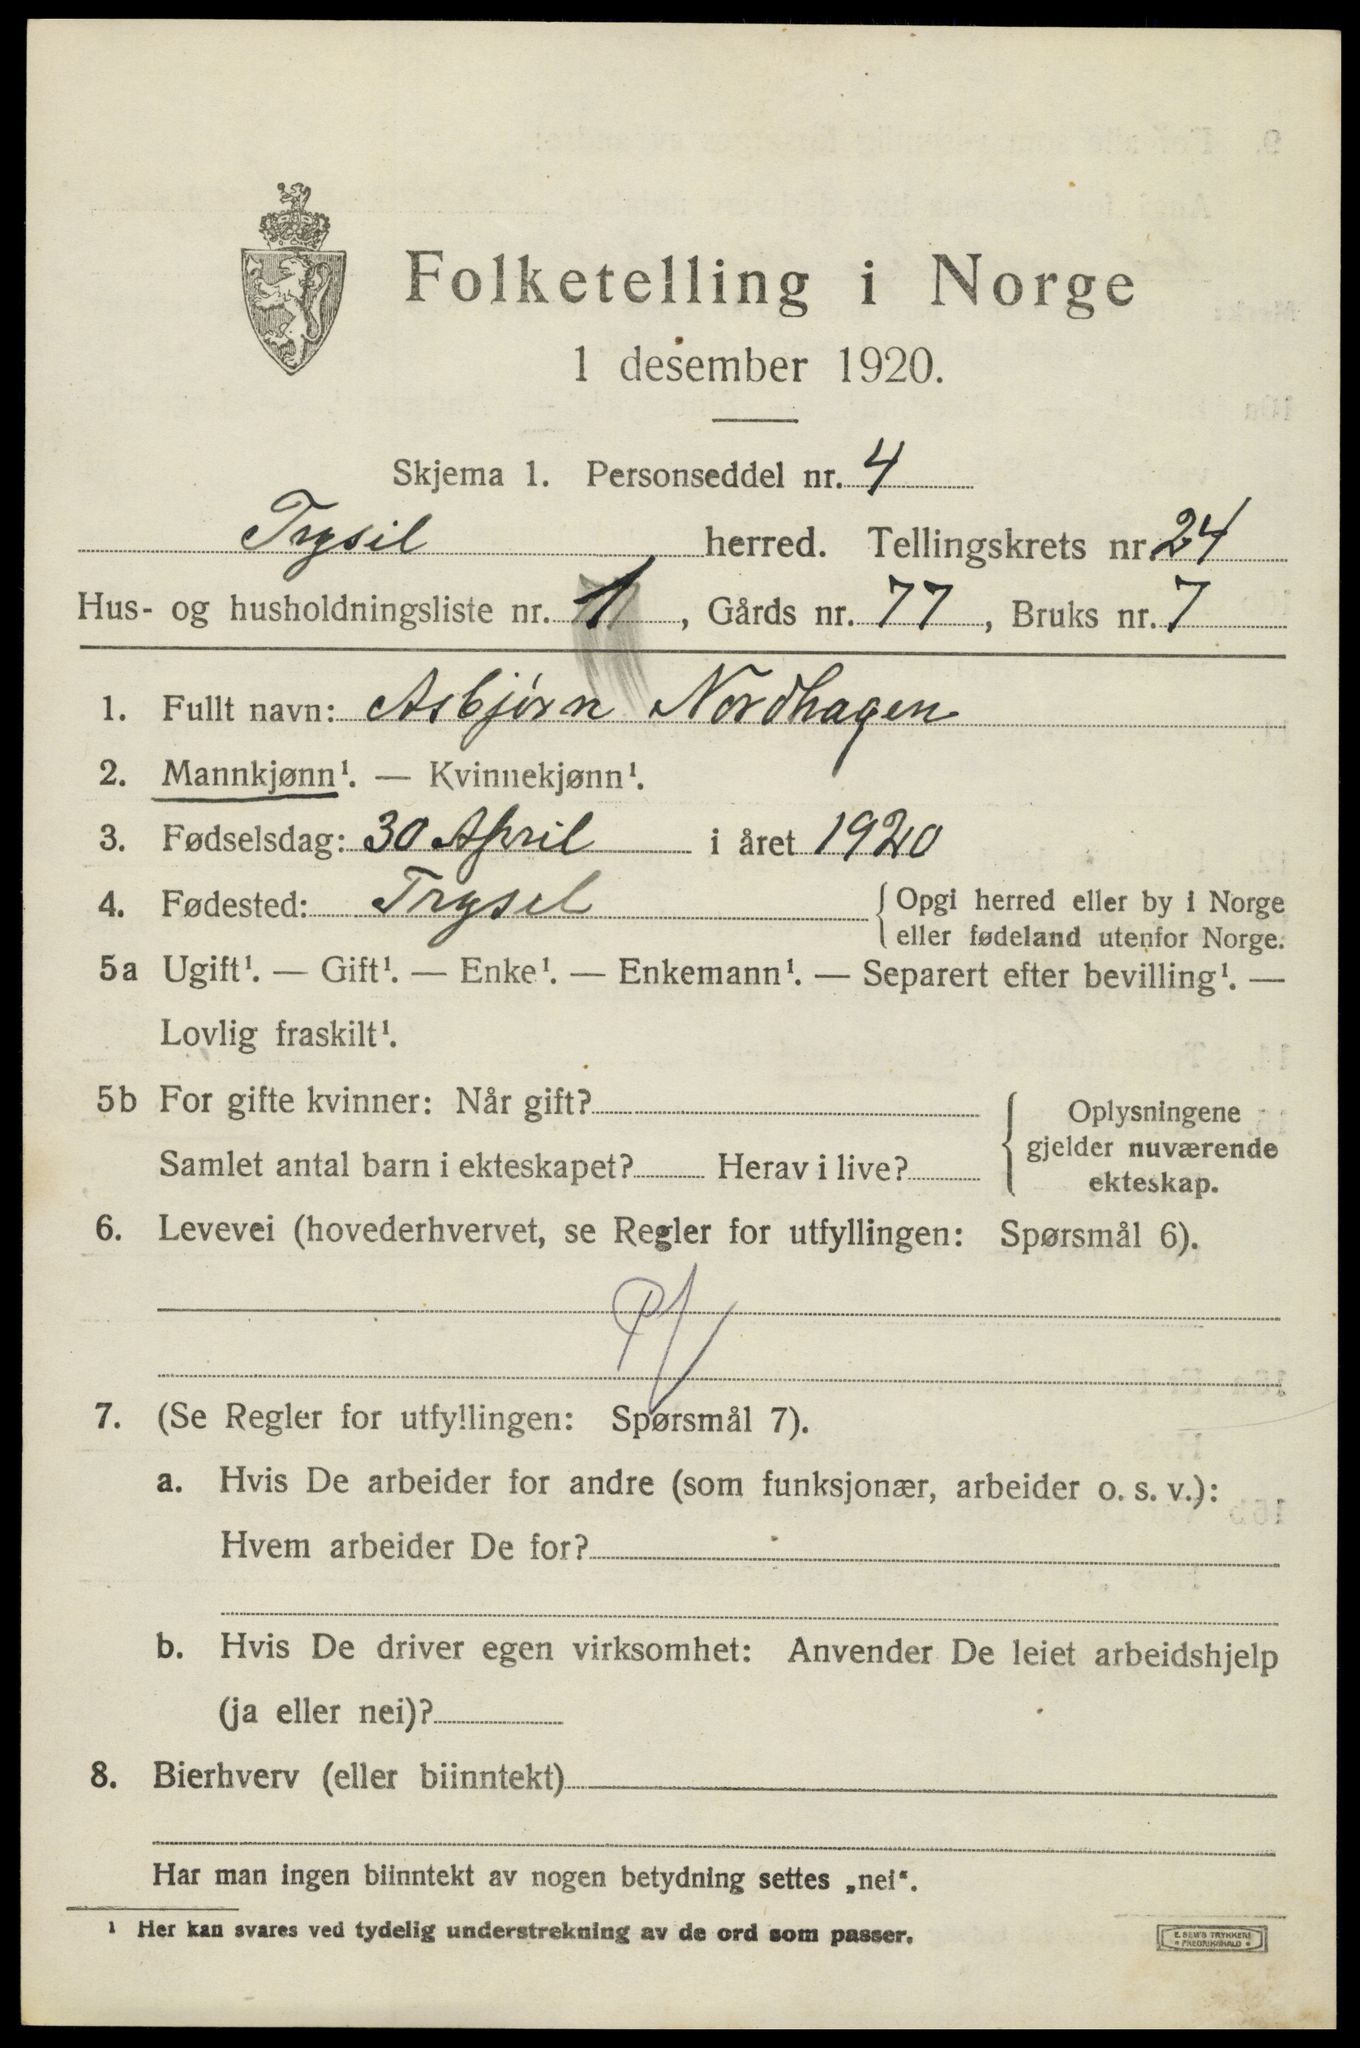 Folketelling i Norge
1 desember 1920.
Skjema 1. Personseddel nr. 4
Trysil herred. Tellingskrets nr. 24
Hus- og husholdningsliste nr. 1, Gårds nr. 77, Bruks nr. 7
1. Fullt navn: Asbjørn Nordhagen
2. Mannkjønn¹. — Kvinnekjønn¹.
3. Fødselsdag: 30 April i året 1920
4. Fødested: Trysel { Opgi herred eller by i Norge
eller fødeland utenfor Norge.
5a Ugift¹. — Gift¹. — Enke¹. — Enkemann¹. — Separert efter bevilling¹. —
Lovlig fraskilt¹.
5b For gifte kvinner: Når gift?
Samlet antal barn i ekteskapet? Herav i live?
{ Oplysningene
gjelder nuværende
ekteskap.
6. Levevei (hovederhvervet, se Regler for utfyllingen: Spørsmål 6).
7. (Se Regler for utfyllingen: Spørsmål 7).
a. Hvis De arbeider for andre (som funksjonær, arbeider o. s. v.):
Hvem arbeider De for?
b. Hvis De driver egen virksomhet: Anvender De leiet arbeidshjelp
(ja eller nei)?
8. Bierhverv (eller biinntekt)
Har man ingen biinntekt av nogen betydning settes „nei“.
¹ Her kan svares ved tydelig understrekning av de ord som passer.
E. SEM'S TRYKKERI
FREDRIKSHALD